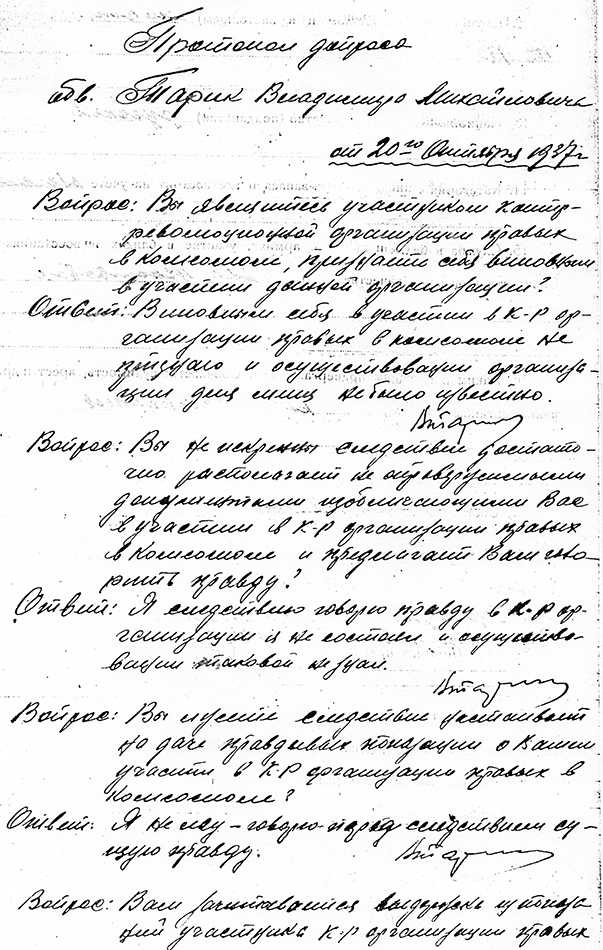 Протокол допроса
обв. Тарик Владимира Михайловича
от 20го Октября 1937г
Вопрос: Вы являетесь участником контр-
революционной организации правых
в комсомоле, признаете себя виновным
в участии данной организации?
Ответ: Виновным себя в участии в К-Р ор-
ганизации правых в комсомоле не
признаю и о существовании организа-
ции для меня не было известно.
ВТарик
Вопрос: Вы не искренны следствие достато-
чно располагает не опровержимыми
документами изобличающими Вас
в участии в К-Р организации правых
в Комсомоле и предлагает Вам гово-
рить правду?
Ответ: Я следствию говорю правду в К-Р ор-
ганизации я не состоял и о существо-
вании таковой не знал.
ВТарик
Вопрос: Вы лжете следствие настаивает
на даче правдивых показаний о Вашем
участии в К-Р организации правых в
Комсомоле?
Ответ: Я не лгу - говорю перед следствием су-
щую правду.
ВТарик
Вопрос: Вам зачитывается выдержка из показа-
ний участника К-Р организации правых